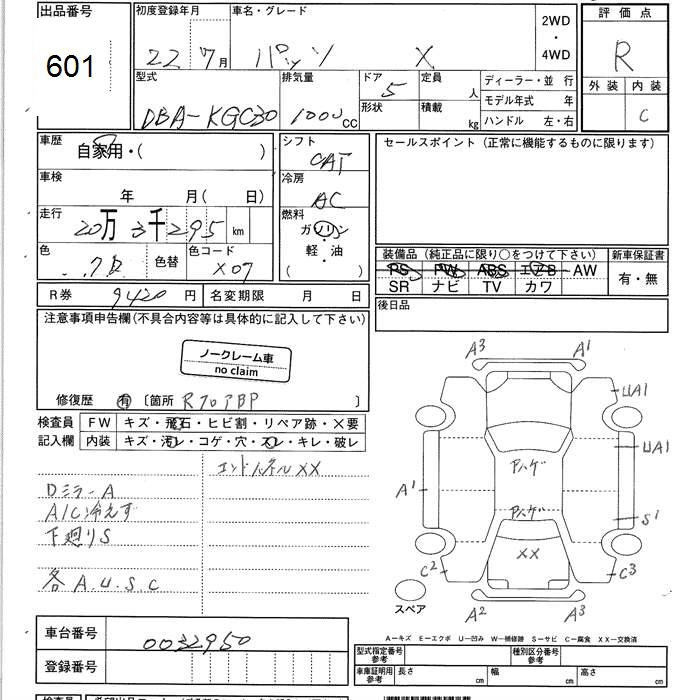 出品番号 初度登録年月 車名・グレード 2WD・4WD 評価点
601 22 7月 パッソ X R
型式 排気量 ドア 5 定員 人 ディーラー・並 行 外装 内装
DBA-KGC30 1000cc 形状 積載 kg モデル年式 年 C
ハンドル 左・右
車歴 自家用・( ) シフト CAT セールスポイント(正常に機能するものに限ります)
車検 年 月( 日) 冷房 AC
走行 20万3千295km 燃料 ガソリン
色 色替 色コード X07 軽・油
( )
装備品(純正品に限り○をつけて下さい) 新車保証書
PS PW ABS エアB AW 有・無
SR ナビ TV カワ
R券 9420円 名変期限 月 日 後日品
注意事項申告欄(不具合内容等は具体的に記入して下さい)
ノークレーム車
no claim
修復歴 有 〔箇所 RフロアBP 〕
検査員 FW キズ・飛石・ヒビ割・リペア跡・×要
記入欄 内装 キズ・汚レ・コゲ・穴・スレ・キレ・破レ
エンドパネルXX
Dミラー A
A/C冷えず
下廻りS
各 A.U.S.C
A3 A1
UA1
アハゲ UA1
A1 アハゲ S1
XX
C2 C3
スペア A2 A3
車台番号 0032950
A−キズ E−エクボ U−凹み W−補修跡 S−サビ C−腐食 XX−交換済
登録番号 型式指定番号 参考 種別区分番号 参考
車庫証明用 参考 長さ cm 幅 cm 高さ cm
検査員